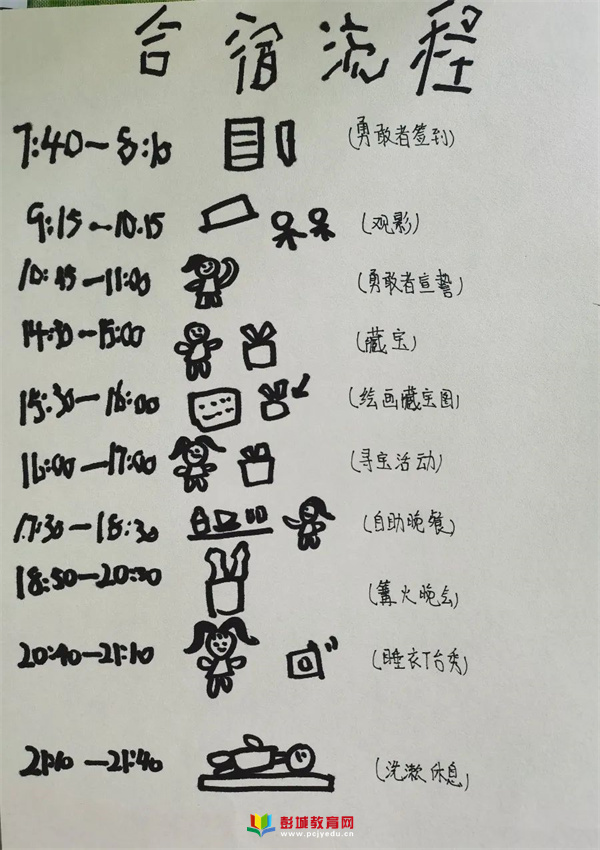 合宿流程
7:40—8:10 (勇敢者签到)
9:15~10.15 (观影)
10:45—11:00 (勇敢者宣誓)
14:30—15:00 (藏宝)
15:30—16:00 (绘画藏宝图)
16:00—17:00 (寻宝活动)
17:30—18:30 (自助晚餐)
18:50—20:30 (篝火晚会)
20:40—21:10 (睡衣T台秀)
21:10—21:40 (洗漱休息)
彭城教育网
www.pcjyedu.cn